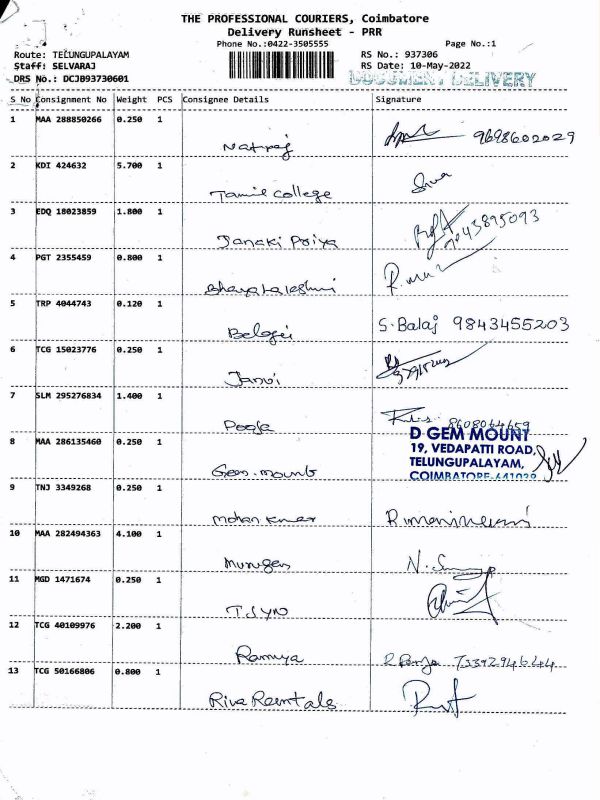 THE PROFESSIONAL COURIERS, Coimbatore
Delivery Runsheet - PRR
Phone No.:0422-3505555
Page No.:1
Route: TELUNGUPALAYAM
RS No.: 937306
Staff: SELVARAJ
RS Date: 10-May-2022
DRS No.: DCJB93730601
DOCUMENT DELIVERY
S No Consignment No Weight PCS Consignee Details Signature
1 MAA 288850266 0.250 1
Natraj 9698602029
2 KDI 424632 5.700 1
Tamil College Siva
3 EDQ 18023859 1.800 1
Janaki Priya 9043895093
4 PGT 2355459 0.800 1
5 TRP 4044743 0.120 1
S. Balaj 9843455203
6 TCG 15023776 0.250 1
7 SLM 295276834 1.400 1
Pooja 8608064659
8 MAA 286135460 0.250 1
D GEM MOUNT
19, VEDAPATTI ROAD,
TELUNGUPALAYAM,
COIMBATORE-641039
Gem. mount
9 TNJ 3349268 0.250 1
10 MAA 282494363 4.100 1
Murugan
11 MGD 1471674 0.250 1
12 TCG 40109976 2.200 1
Ramya
13 TCG 50166806 0.800 1
Riva Reentals